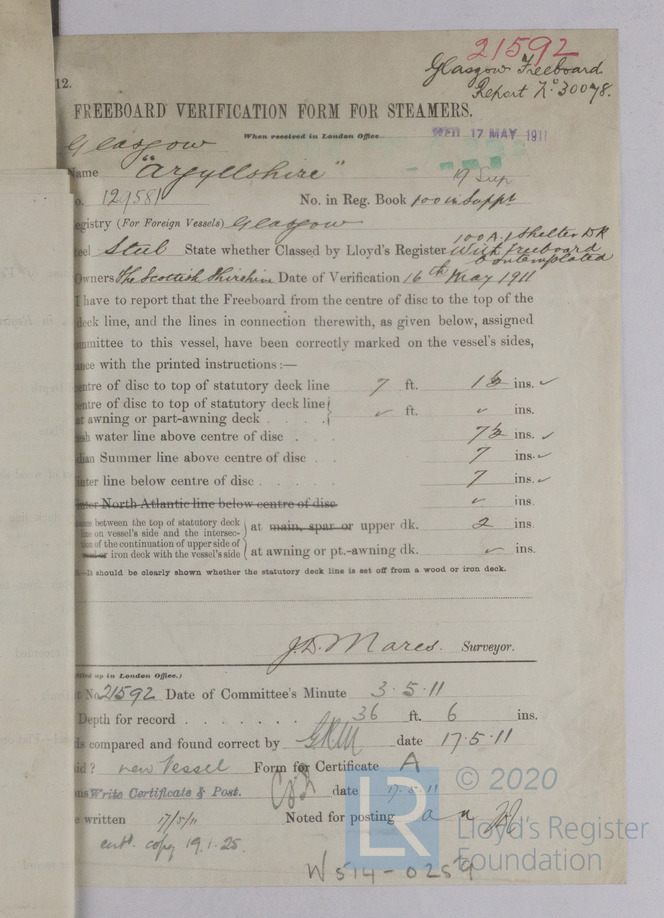 21592
Glasgow Freeboard
Report No. 30078.
12.
FREEBOARD VERIFICATION FORM FOR STEAMERS.
When received in London Office
WED. 17 MAY 1911
Glasgow
Name "Argyllshire" 19 Sup
o. 129581 No. in Reg. Book 100 in Suppt
egistry (For Foreign Vessels) Glasgow
100 A.1 Shelter Dk
eel Steel State whether Classed by Lloyd's Register With Freeboard
Contemplated
Owners The Scottish Shireline Date of Verification 16th May 1911
I have to report that the Freeboard from the centre of disc to the top of the
deck line, and the lines in connection therewith, as given below, assigned
mmittee to this vessel, have been correctly marked on the vessel's sides,
ance with the printed instructions:—
entre of disc to top of statutory deck line 7 ft. 1½ ins. ✓
entre of disc to top of statutory deck line
at awning or part-awning deck . . . . ✓ ft. ✓ ins.
sh water line above centre of disc . . 7½ ins. ✓
dian Summer line above centre of disc . . 7 ins. ✓
inter line below centre of disc . . . . 7 ins. ✓
inter North Atlantic line below centre of disc ✓ ins.
ance between the top of statutory deck
line on vessel's side and the intersec- at main, spar or upper dk. 2 ins.
tion of the continuation of upper side of
wood or iron deck with the vessel's side at awning or pt.-awning dk. ✓ ins.
.—It should be clearly shown whether the statutory deck line is set off from a wood or iron deck.
J.D. Mares. Surveyor.
filled up in London Office.)
t No. 21592 Date of Committee's Minute 3.5.11
Depth for record . . . . . . . 36 ft. 6 ins.
ls compared and found correct by GRM date 17.5.11
id? new Vessel Form for Certificate A
ns Write Certificate & Post. date 17.5.11
e written 17/5/11 Noted for posting
certf. copy 19.1.25.
W514-0259
LR
© 2020
Lloyd's Register
Foundation